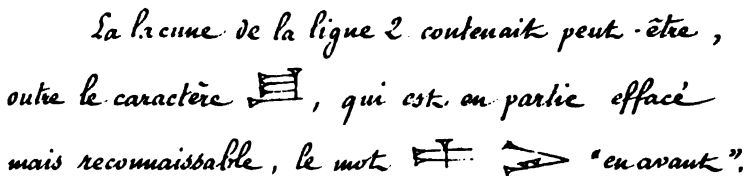 La lacune de la ligne 2 contenait peut-être,
outre le caractère, qui est en partie effacé
mais reconnaissable, le mot "en avant".